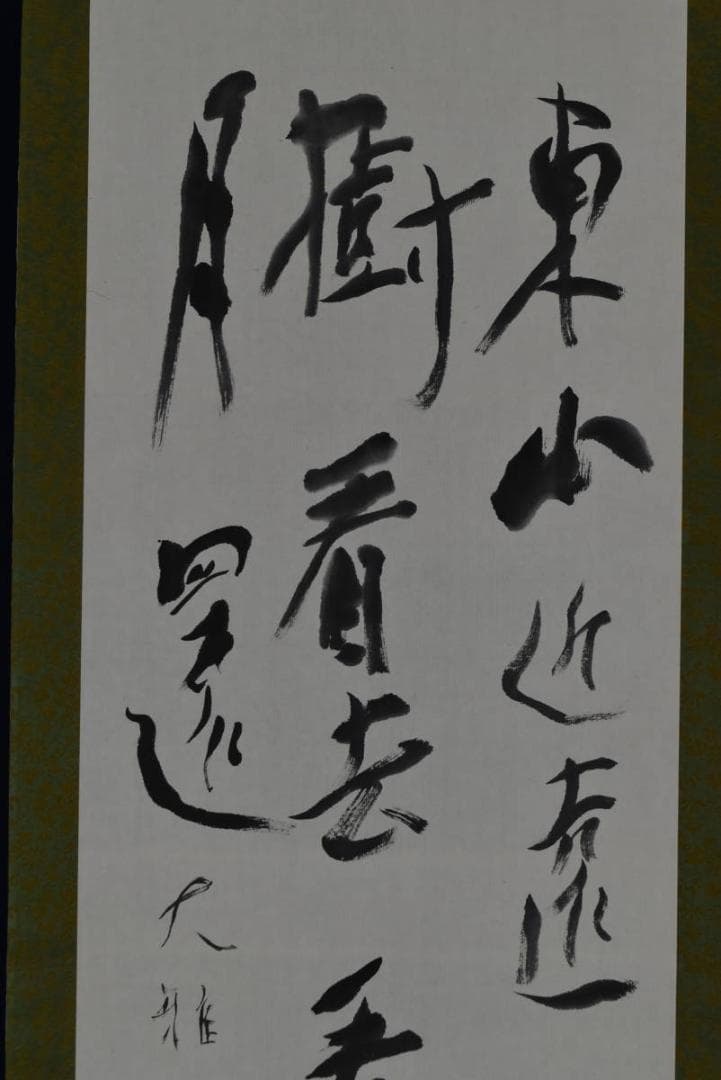 東山近遠
樹看去
月還
大雅